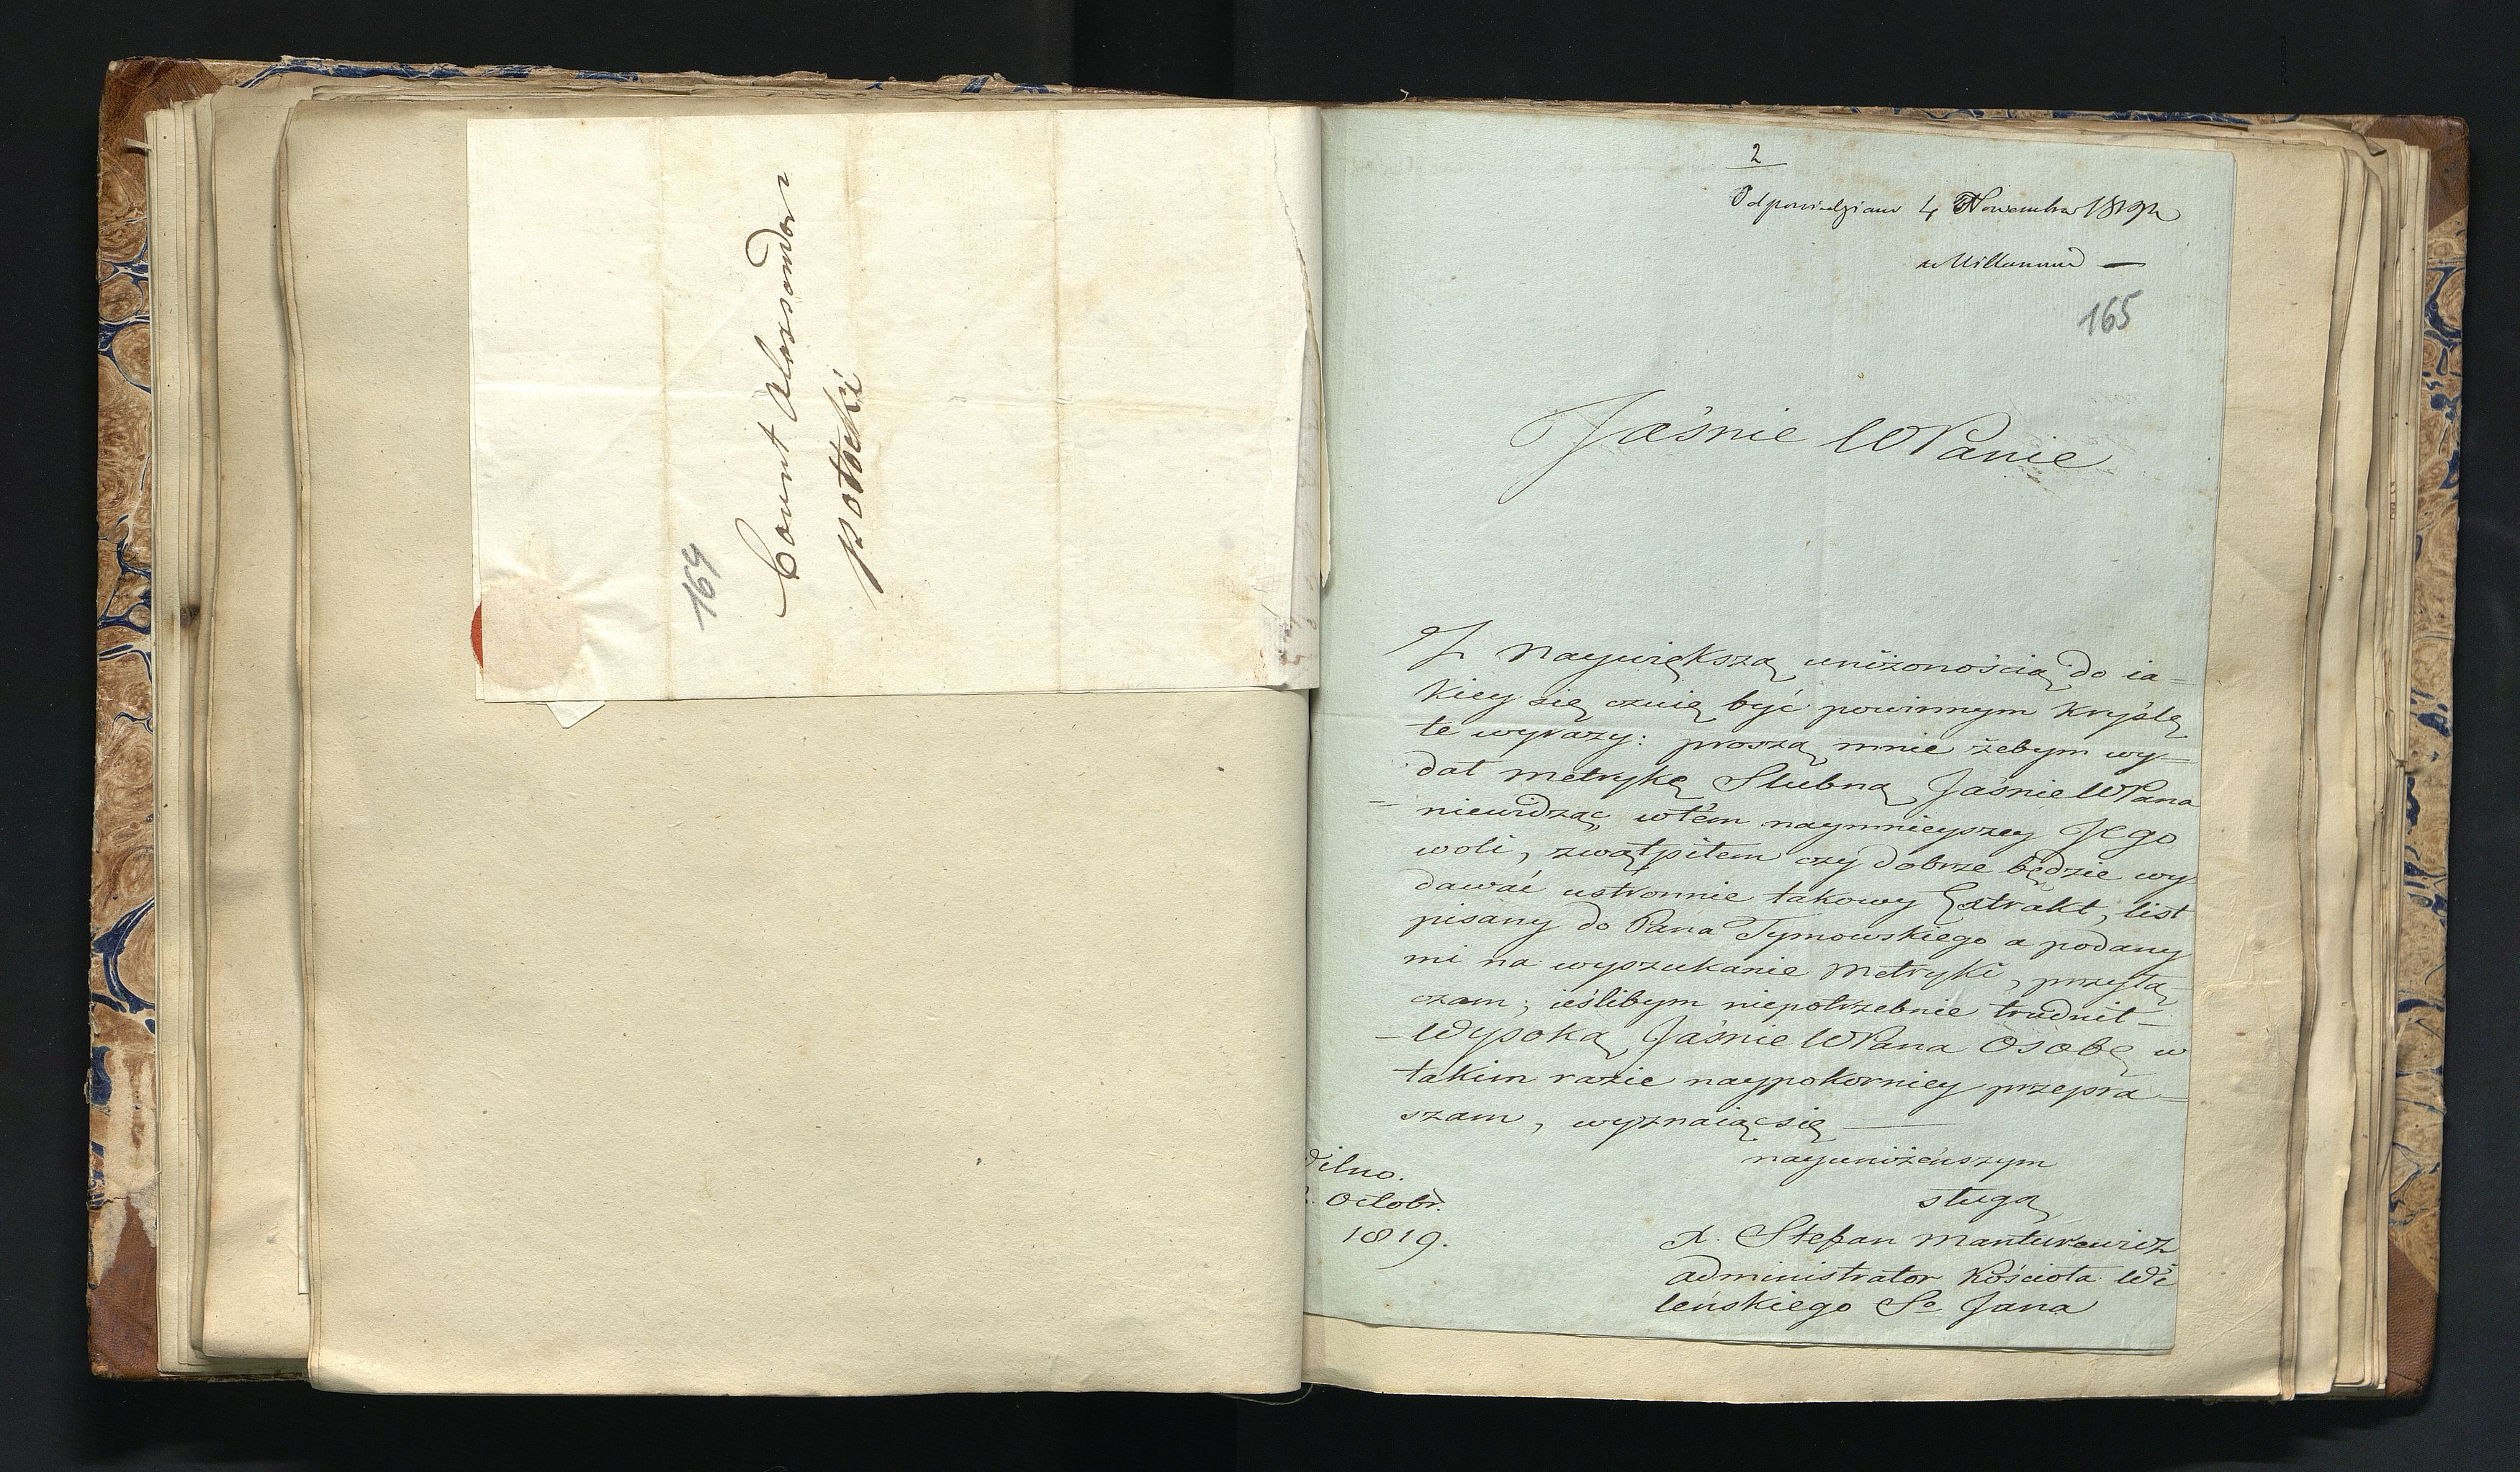 164
Count Alexsander
pottcki
2
Odpowiedziano 4 Novembra 1819
165
Jaśnie WPanie
Z Naywiększą uniżonością do ia-
kiey się czuię być powinnym kryślę
te wyrazy: proszą mnie żebym wy-
dał metrykę Slubną Jaśnie WPana
niewidząc wtem naymnieyszey Jego
woli, zwątpiłem czy dobrze będzie wy
dawać ustronnie takowy Extrakt, list
pisany do Pana Tymowskiego a podany
mi na wyszukanie metryki, przyłą-
czam; ieślibym niepotrzebnie trudnił
Wysoką Jaśnie WPana Osobę w
takim razie naypokorniey przepra-
szam, wyznaiąc się
nayuniżeńszym
sługą
X. Stefan Manturewicz
administrator Kościoła Wi
leńskiego So Jana
Wilno.
Octobr.
1819.